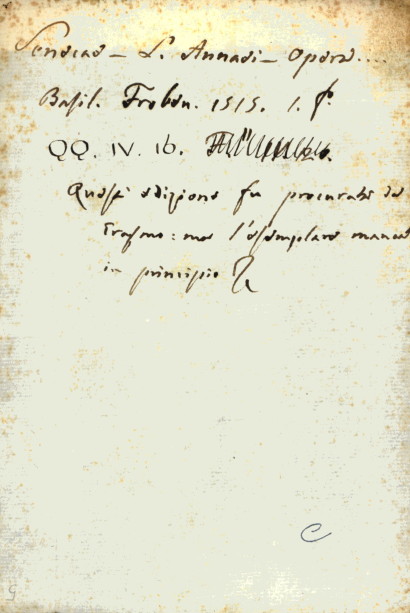 Senecae – L. Annaei – Opera....
Basil. Froben. 1515. 1. fo.
QQ. IV. 16.
Questa edizione fu procurata da
Erasmo: ma l'esemplare manca
in principio
C